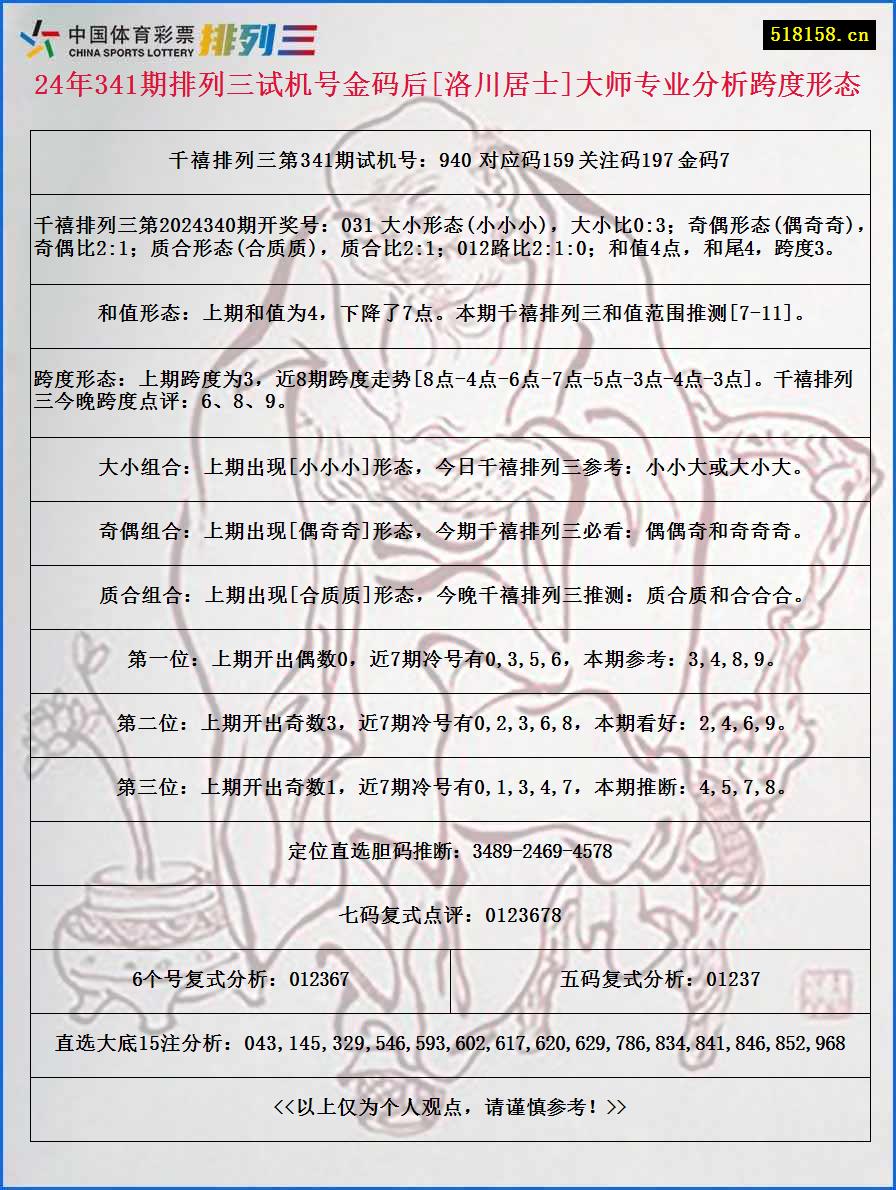 中国体育彩票
CHINA SPORTS LOTTERY
排列三
518158.cn
24年341期排列三试机号金码后[洛川居士]大师专业分析跨度形态
千禧排列三第341期试机号：940 对应码159关注码197金码7
千禧排列三第2024340期开奖号：031 大小形态(小小小)，大小比0:3；奇偶形态(偶奇奇)，
奇偶比2:1；质合形态(合质质)，质合比2:1；012路比2:1:0；和值4点，和尾4，跨度3。
和值形态：上期和值为4，下降了7点。本期千禧排列三和值范围推测[7-11]。
跨度形态：上期跨度为3，近8期跨度走势[8点-4点-6点-7点-5点-3点-4点-3点]。千禧排列
三今晚跨度点评：6、8、9。
大小组合：上期出现[小小小]形态，今日千禧排列三参考：小小大或大小大。
奇偶组合：上期出现[偶奇奇]形态，今期千禧排列三必看：偶偶奇和奇奇奇。
质合组合：上期出现[合质质]形态，今晚千禧排列三推测：质合质和合合合。
第一位：上期开出偶数0，近7期冷号有0,3,5,6，本期参考：3,4,8,9。
第二位：上期开出奇数3，近7期冷号有0,2,3,6,8，本期看好：2,4,6,9。
第三位：上期开出奇数1，近7期冷号有0,1,3,4,7，本期推断：4,5,7,8。
定位直选胆码推断：3489-2469-4578
七码复式点评：0123678
6个号复式分析：012367
五码复式分析：01237
直选大底15注分析：043,145,329,546,593,602,617,620,629,786,834,841,846,852,968
<<以上仅为个人观点，请谨慎参考！>>